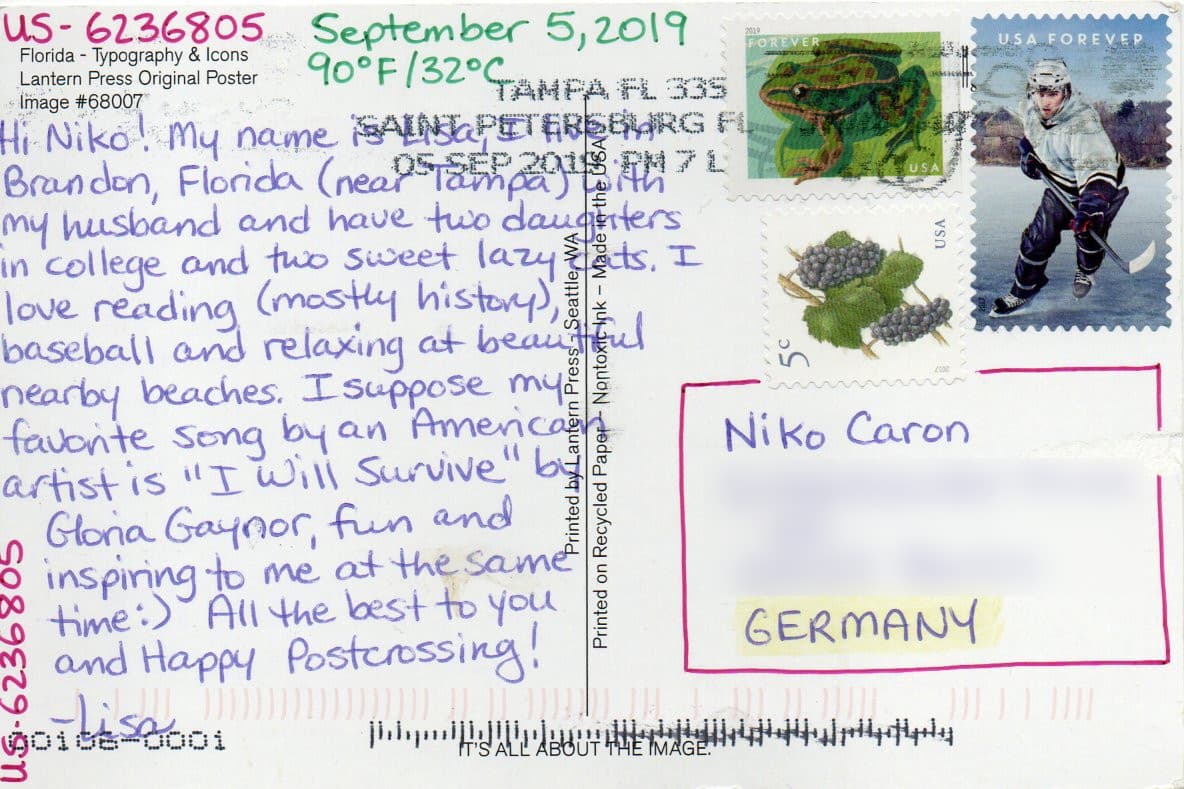 US-6236805
September 5, 2019
90°F/32°C
Florida - Typography & Icons
Lantern Press Original Poster
Image #68007
TAMPA FL 335
SAINT PETERSBURG FL
05 SEP 2019 PM 7 L
Hi Niko! My name is Lisa, I live in
Brandon, Florida (near Tampa) with
my husband and have two daughters
in college and two sweet lazy cats. I
love reading (mostly history),
baseball and relaxing at beautiful
nearby beaches. I suppose my
favorite song by an American
artist is "I Will Survive" by
Gloria Gaynor, fun and
inspiring to me at the same
time:) All the best to you
and Happy Postcrossing!
-Lisa
US-6236805
Printed by Lantern Press - Seattle, WA
Printed on Recycled Paper - Nontoxic Ink – Made in the USA
2019
FOREVER
USA
USA FOREVER
2017
USA
5c
2017
Niko Caron
GERMANY
00106-0001
IT'S ALL ABOUT THE IMAGE.